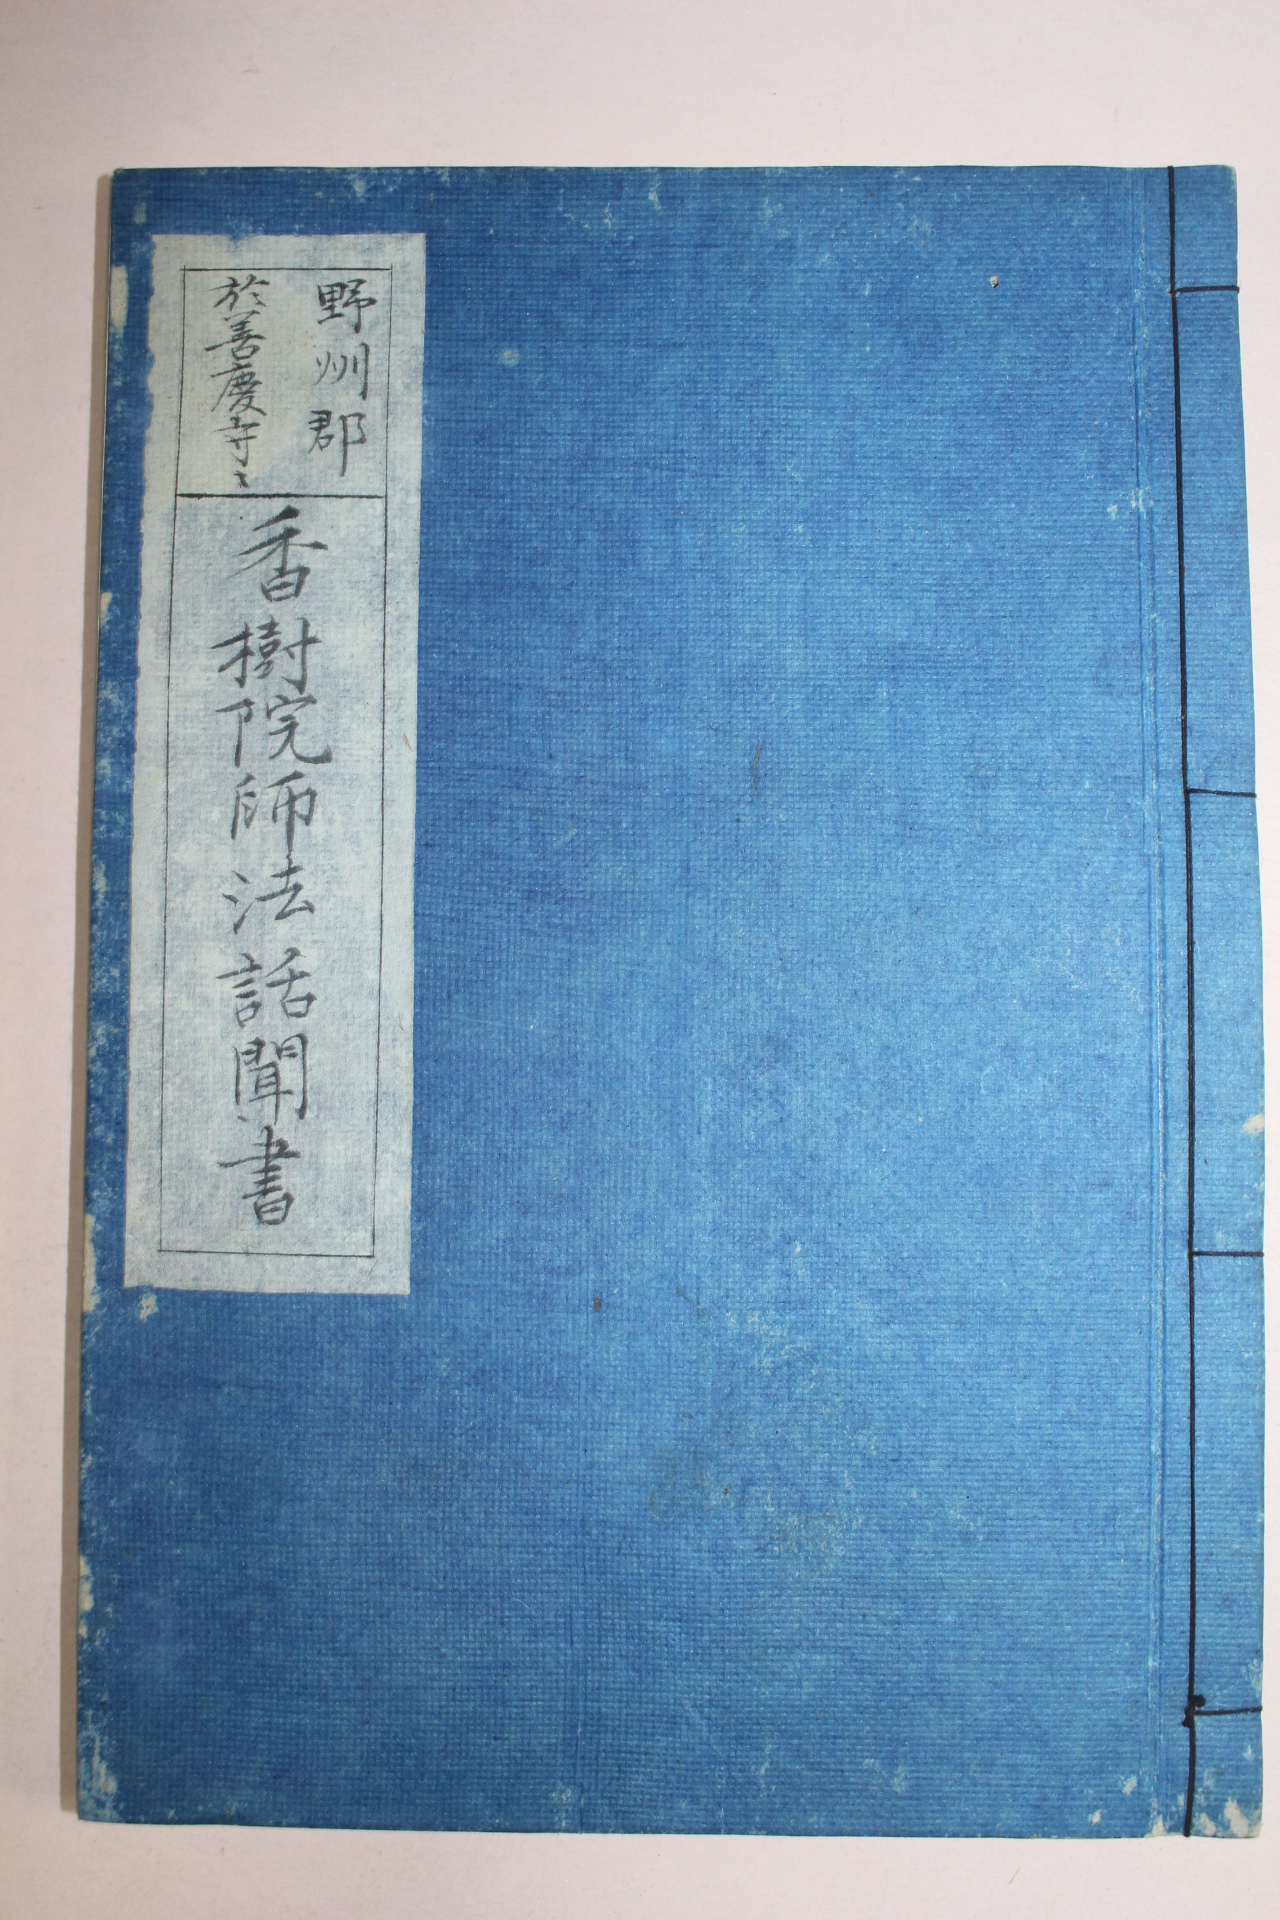 野州郡
於善慶寺ニ
香樹院師法話聞書